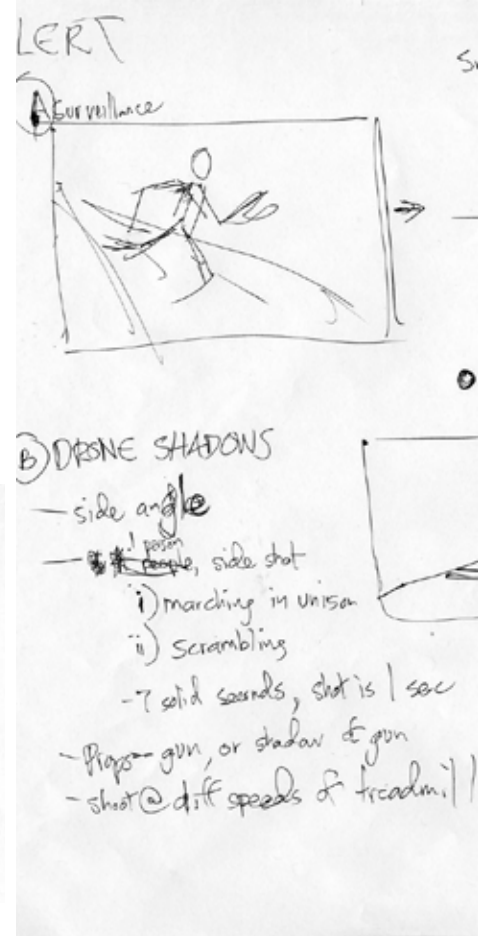 LERT
A Surveillance
B DRONE SHADOWS
- side angle
- 1 person people, side shot
i) marching in unison
ii) scrambling
- 7 solid seconds, shot is 1 sec
- Props - gun, or shadow of gun
- shoot @ diff speeds of treadmill